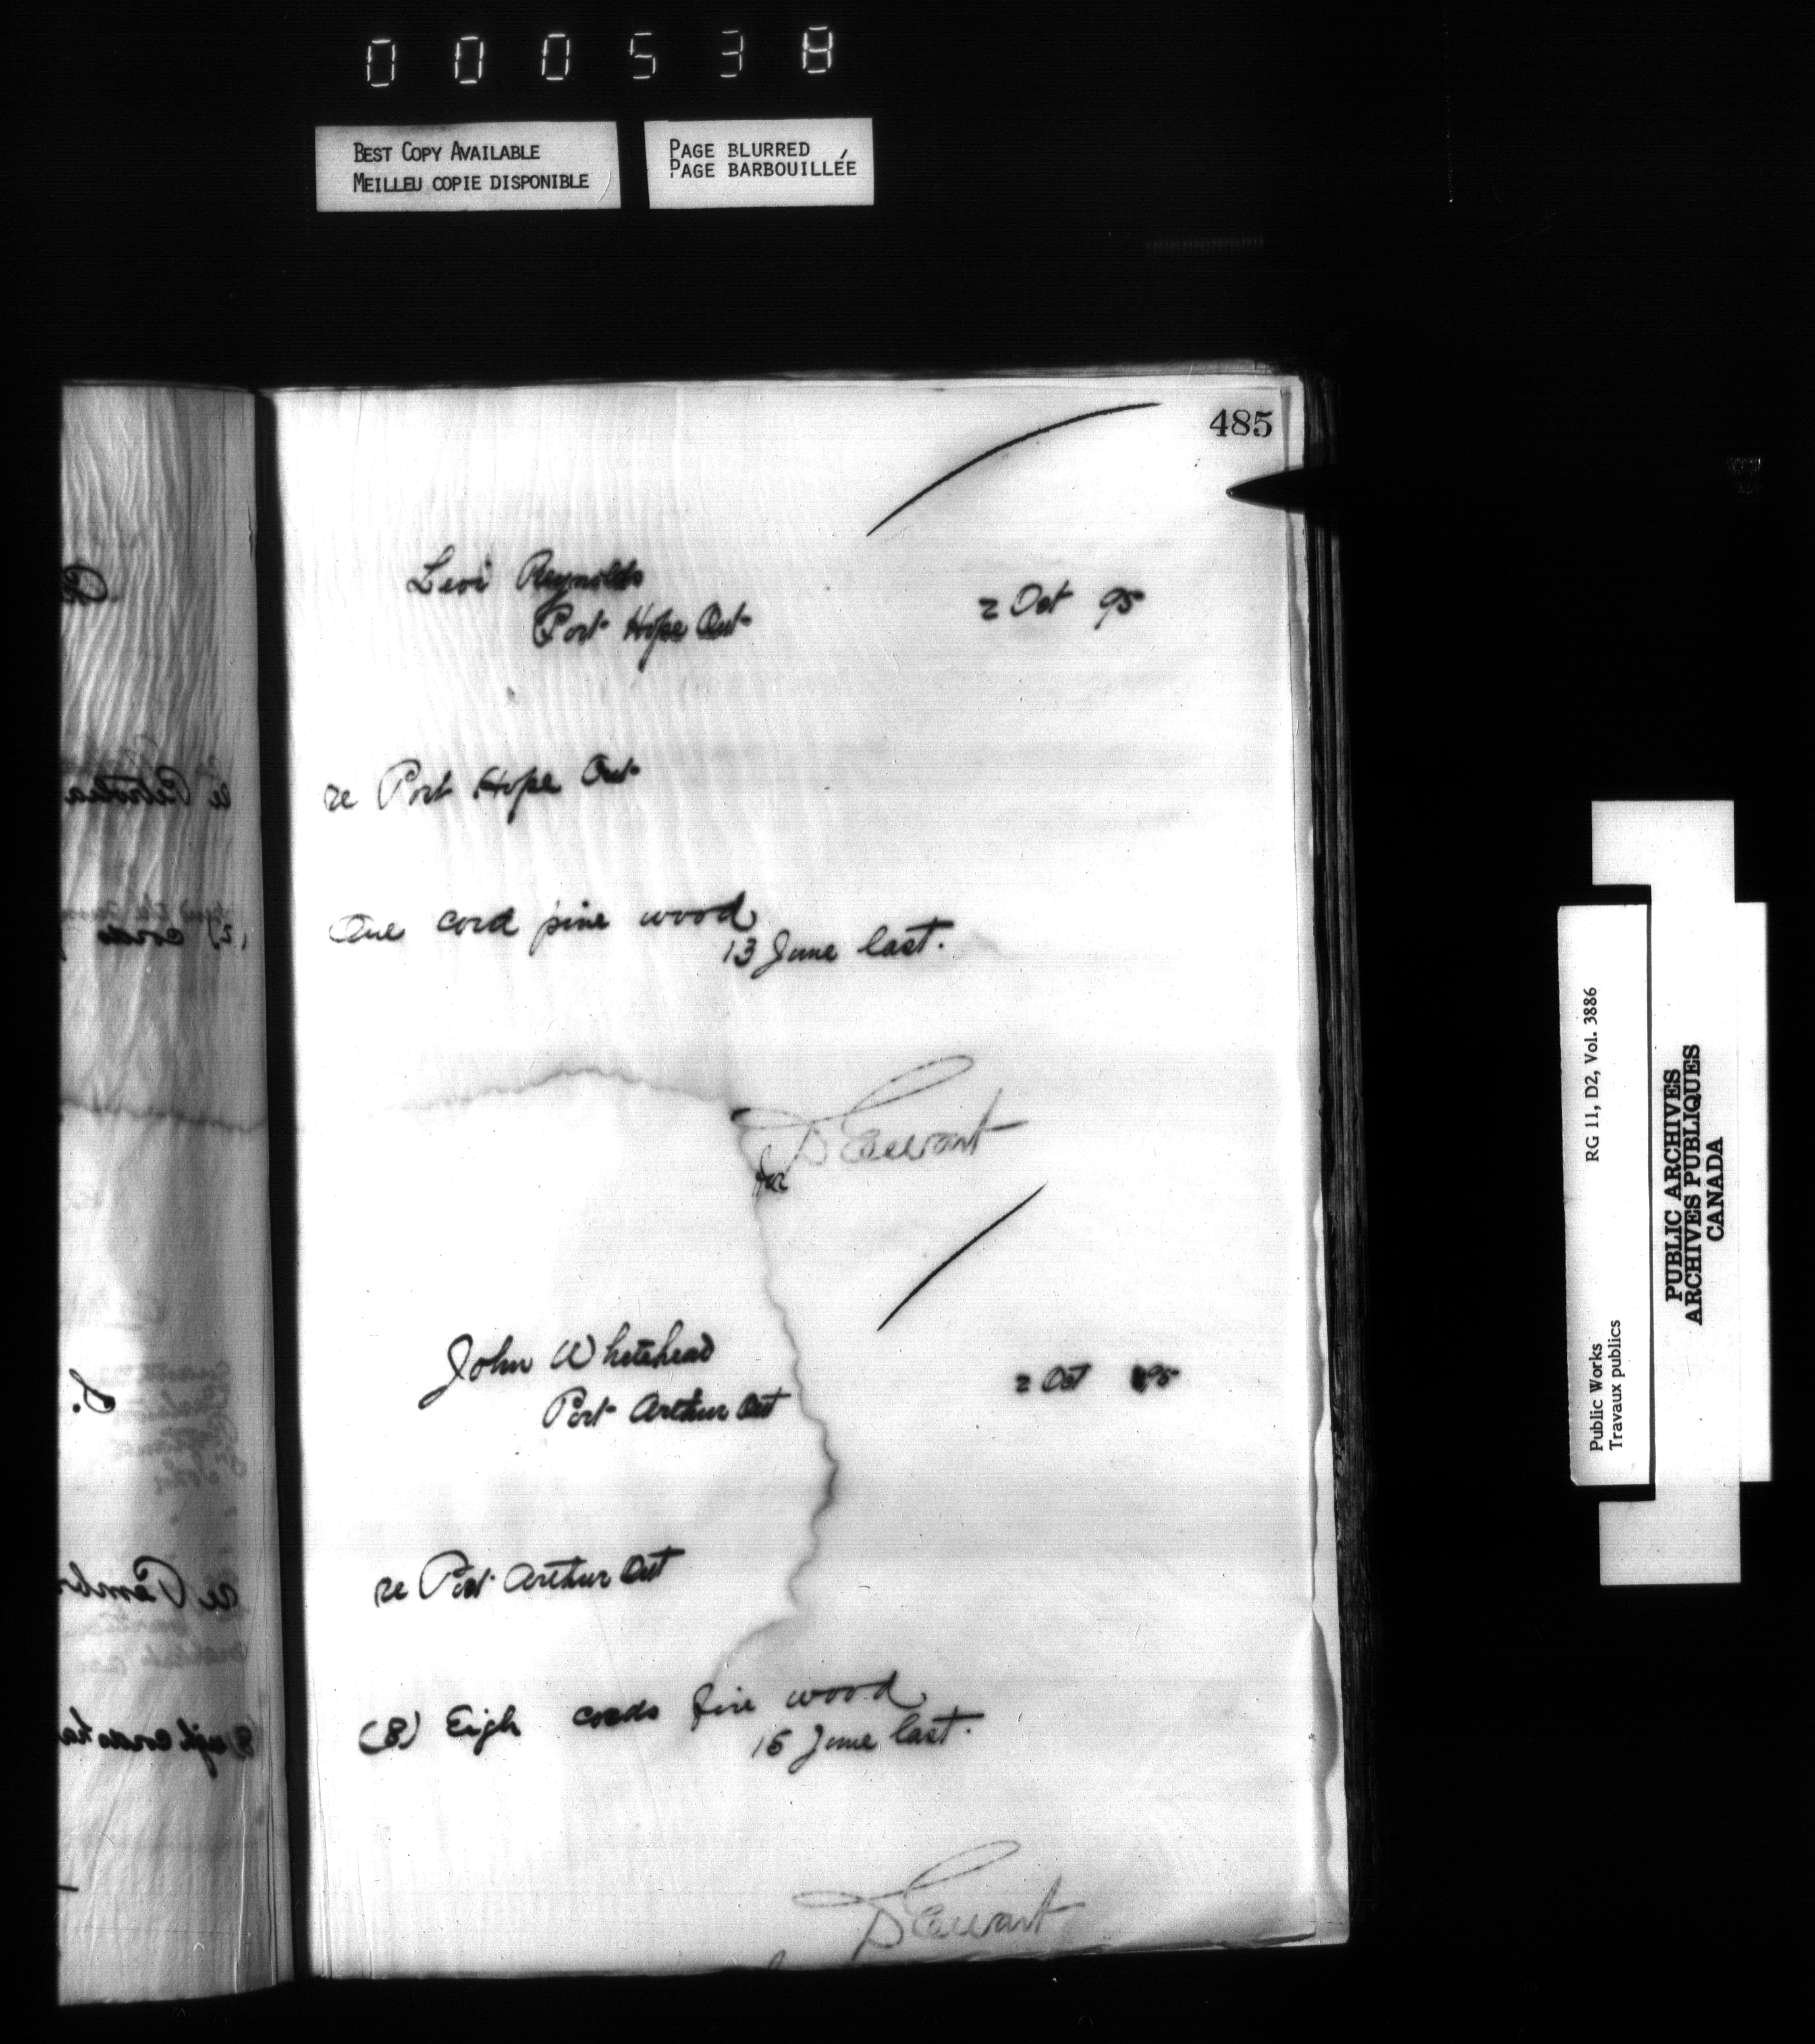 000538
BEST COPY AVAILABLE
MEILLEU COPIE DISPONIBLE
PAGE BLURRED
PAGE BARBOUILLÉE
485
Levi Reynolds
Port Hope Ont
2 Oct 95
re Port Hope Ont
One cord pine wood
13 June last.
for D Ewart
John Whitehead
Port Arthur Ont
2 Oct 95
re Port Arthur Ont
(8) Eigh cords fire wood
15 June last.
D Ewart
Public Works
Travaux publics
RG 11, D2, Vol. 3886
PUBLIC ARCHIVES
ARCHIVES PUBLIQUES
CANADA